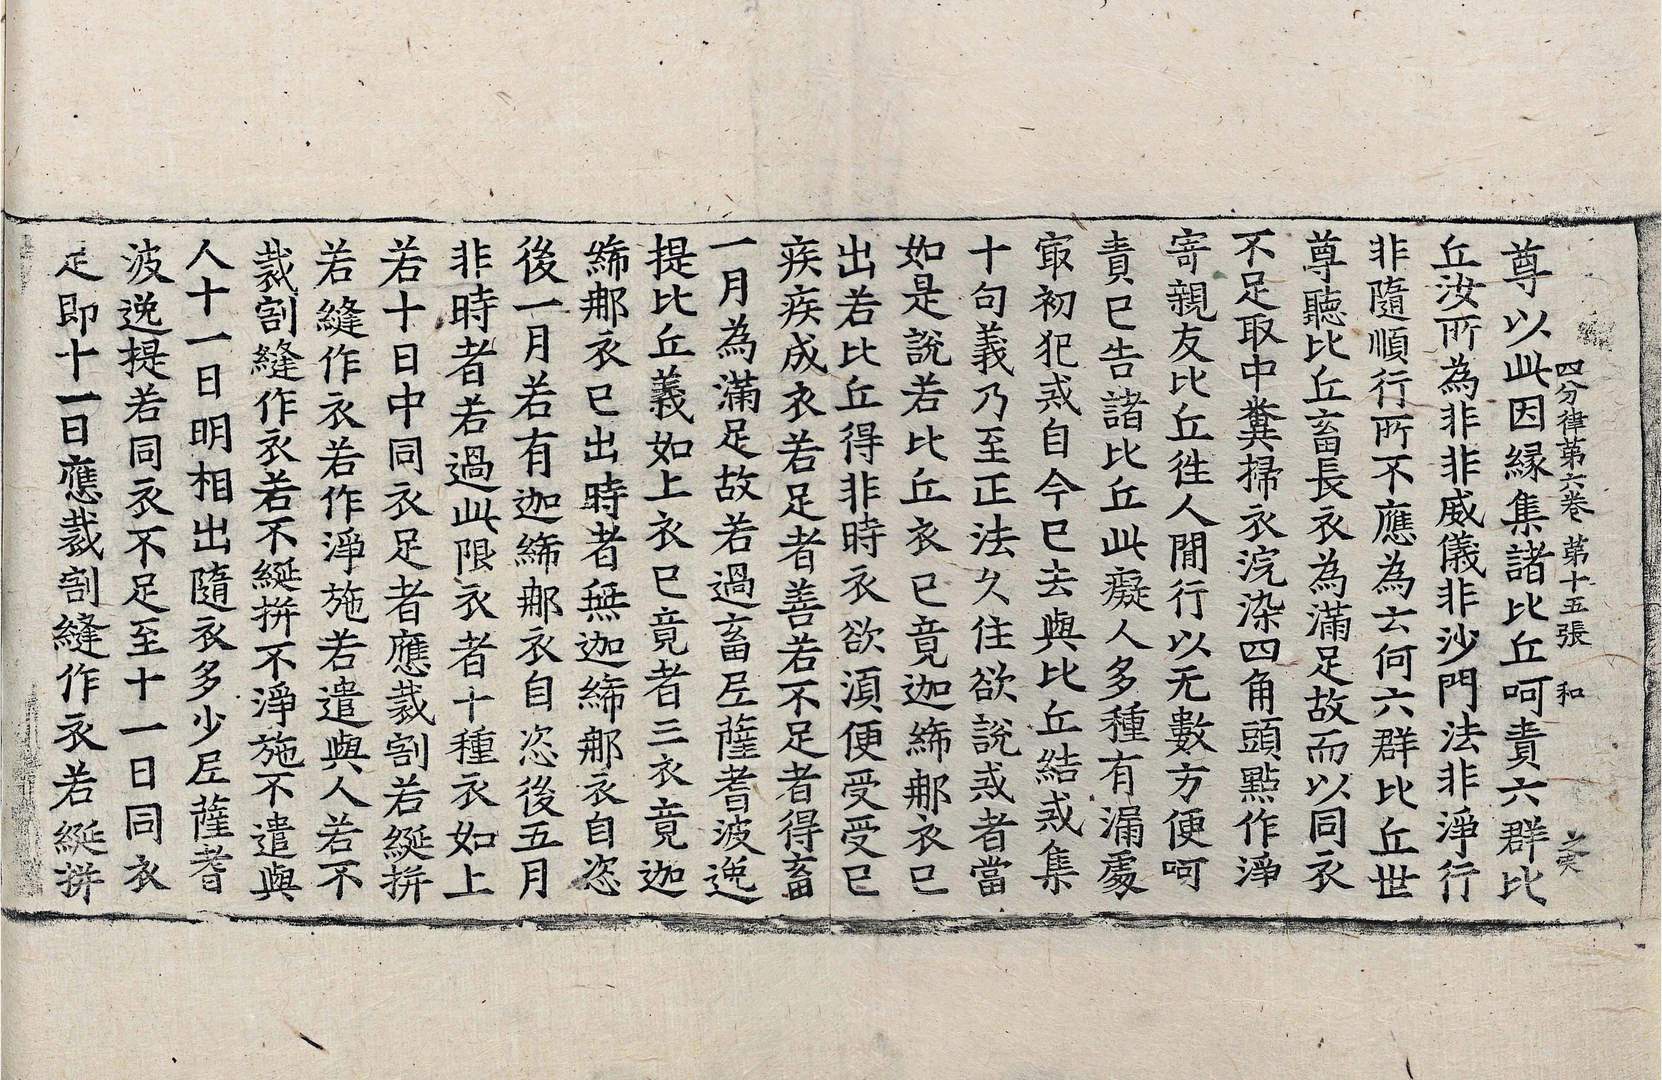 四分律第六卷 第十五張 和
尊以此因緣集諸比丘呵責六群比
丘汝所為非非威儀非沙門法非淨行
非隨順行所不應為云何六群比丘世
尊聽比丘畜長衣為滿足故而以同衣
不足取中糞掃衣浣染四角頭點作淨
寄親友比丘徃人閒行以无數方便呵
責已告諸比丘此癡人多種有漏處
㝡初犯戒自今已去與比丘結戒集
十句義乃至正法久住欲說戒者當
如是說若比丘衣已竟迦絺那衣已
出若比丘得非時衣欲湏便受受已
疾疾成衣若足者善若不足者得畜
一月為滿足故若過畜尼薩耆波逸
提比丘義如上衣已竟者三衣竟迦
絺那衣已出時者無迦絺那衣自恣
後一月若有迦絺那衣自恣後五月
非時者若過此限衣者十種衣如上
若十日中同衣足者應裁割若綖拼
若縫作衣若作淨施若遣與人若不
裁割縫作衣若不綖拼不淨施不遣與
人十一日明相出隨衣多少尼薩耆
波逸提若同衣不足至十一日同衣
足即十一日應裁割縫作衣若綖拼